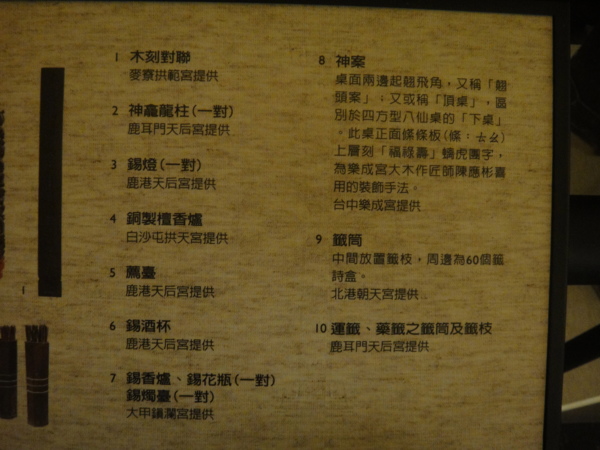 1 木刻對聯
麥寮拱範宮提供
2 神龕龍柱(一對)
鹿耳門天后宮提供
3 錫燈(一對)
鹿港天后宮提供
4 銅製檀香爐
白沙屯拱天宮提供
5 薦臺
鹿港天后宮提供
6 錫酒杯
鹿港天后宮提供
7 錫香爐、錫花瓶(一對)
錫燭臺(一對)
大甲鎮瀾宮提供
1
8 神案
桌面兩邊起翹飛角，又稱「翹
頭案」；又或稱「頂桌」，區
別於四方型八仙桌的「下桌」
。此桌正面絛絛板(絛：ㄊㄠ)
上層刻「福祿壽」螭虎團字，
為樂成宮大木作匠師陳應彬喜
用的裝飾手法。
台中樂成宮提供
9 籤筒
中間放置籤枝，周邊為60個籤
詩盒。
北港朝天宮提供
10 運籤、藥籤之籤筒及籤枝
鹿耳門天后宮提供